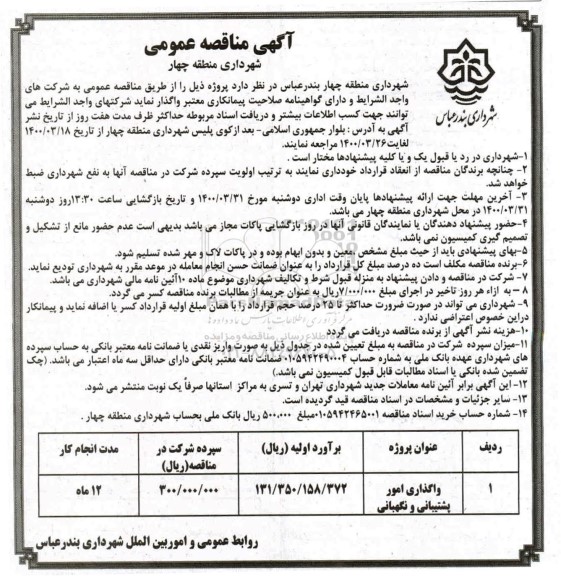 آگهی مناقصه عمومی
شهرداری منطقه چهار
شهرداری بندرعباس
شهرداری منطقه چهار بندرعباس در نظر دارد پروژه ذیل را از طریق مناقصه عمومی به شرکت های
واجد الشرایط و دارای گواهینامه صلاحیت پیمانکاری معتبر واگذار نماید شرکتهای واجد الشرایط می
توانند جهت کسب اطلاعات بیشتر و دریافت اسناد مربوطه حداکثر ظرف مدت هفت روز از تاریخ نشر
آگهی به آدرس : بلوار جمهوری اسلامی- بعد ازکوی پلیس شهرداری منطقه چهار از تاریخ ۱۴۰۰/۰۳/۱۸
لغایت ۱۴۰۰/۰۳/۲۶ مراجعه نمایند.
۱-شهرداری در رد یا قبول یک و یا کلیه پیشنهادها مختار است .
۲- چنانچه برندگان مناقصه از انعقاد قرارداد خودداری نمایند به ترتیب اولویت سپرده شرکت در مناقصه آنها به نفع شهرداری ضبط
خواهد شد.
۳- آخرین مهلت جهت ارائه پیشنهادها پایان وقت اداری دوشنبه مورخ ۱۴۰۰/۰۳/۳۱ و تاریخ بازگشایی ساعت ۱۳:۳۰روز دوشنبه
۱۴۰۰/۰۳/۳۱ در محل شهرداری منطقه چهار می باشد.
۴-حضور پیشنهاد دهندگان یا نمایندگان قانونی آنها در روز بازگشایی پاکات مجاز می باشد بدیهی است عدم حضور مانع از تشکیل و
تصمیم گیری کمیسیون نمی باشد.
۵-بهای پیشنهادی باید از حیث مبلغ مشخص معین و بدون ابهام بوده و در پاکات لاک و مهر شده تسلیم شود.
۶-برنده مناقصه مکلف است ده درصد مبلغ کل قرارداد را به عنوان ضمانت حسن انجام معامله در موعد مقرر به شهرداری تودیع نماید.
۷- شرکت در مناقصه و دادن پیشنهاد به منزله قبول شرط و تکالیف شهرداری موضوع ماده ۱۰آئین نامه مالی شهرداری می باشد.
۸- به ازاء هر روز تاخیر در اجرای مبلغ ۷/۰۰۰/۰۰۰ریال به عنوان جریمه از مطالبات برنده مناقصه کسر می گردد.
۹- شهرداری می تواند در صورت ضرورت حداکثر تا ۲۵ درصد حجم قرارداد را با همان مبلغ اولیه قرارداد کسر یا اضافه نماید و پیمانکار
دراین خصوص اعتراضی ندارد .
۱۰-هزینه نشر آگهی از برنده مناقصه دریافت می گردد
۱۱-میزان سپرده شرکت در مناقصه به مبلغ تعیین شده در جدول ذیل به صورت واریز نقدی یا ضمانت نامه معتبر بانکی به حساب سپرده
های شهرداری عهده بانک ملی به شماره حساب ۰۱۰۵۹۴۲۴۹۰۰۴ ضمانت نامه معتبر بانکی دارای حداقل سه ماه اعتبار می باشد. (چک
تضمین شده بانکی یا اسناد مطالبات قابل قبول کمیسیون نمی باشد.)
۱۲-این آگهی برابر آئین نامه معاملات جدید شهرداری تهران و تسری به مراکز استانها صرفاً یک نوبت منتشر می شود.
۱۳-سایر جزئیات و مشخصات در اسناد مناقصه قید گردیده است.
۱۴- شماره حساب خرید اسناد مناقصه ۰۱۰۵۹۴۲۴۶۵۰۰۱مبلغ ۵۰۰.۰۰۰ ریال بانک ملی بحساب شهرداری منطقه چهار .
ردیف عنوان پروژه برآورد اولیه (ریال) سپرده شرکت در مناقصه(ریال) مدت انجام کار
۱ واگذاری امور پشتیبانی و نگهبانی ۱۳۱/۳۵۰/۱۵۸/۳۷۲ ۳۰۰/۰۰۰/۰۰۰ ۱۲ ماه
روابط عمومی و اموربین الملل شهرداری بندرعباس